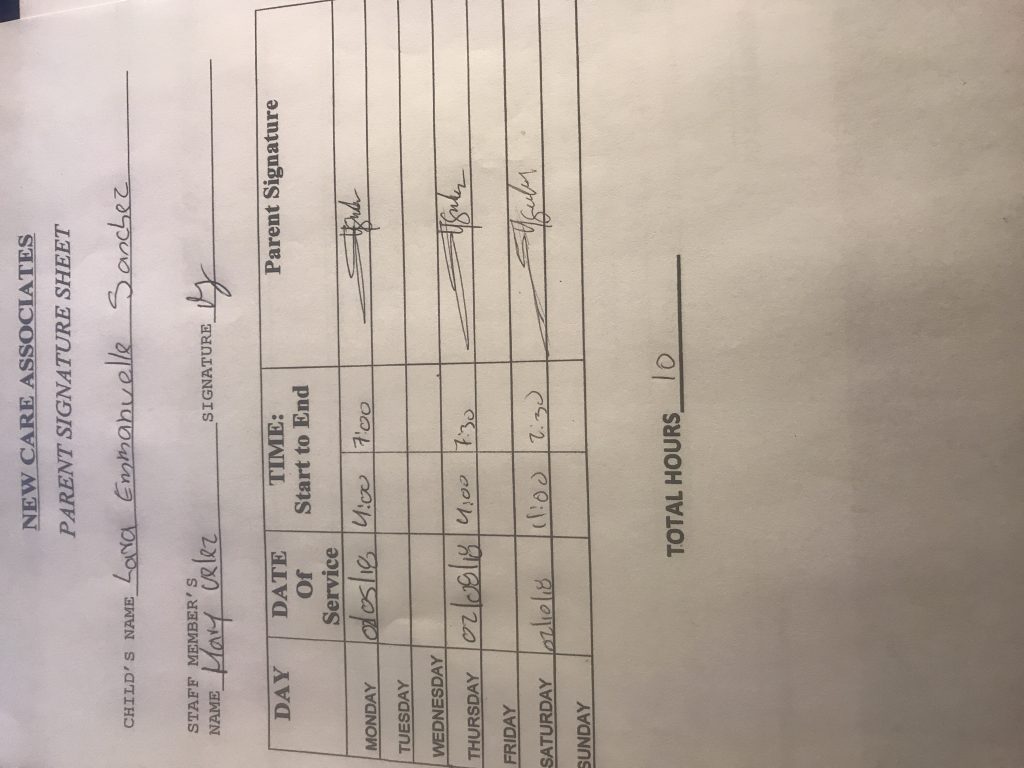 NEW CARE ASSOCIATES
PARENT SIGNATURE SHEET
CHILD'S NAME Lara Emmanuelle Sanchez
STAFF MEMBER'S
NAME Mary Velez SIGNATURE
DAY DATE Of Service TIME: Start to End Parent Signature
MONDAY 02/05/18 4:00 7:00
TUESDAY
WEDNESDAY
THURSDAY 02/08/18 4:00 7:30
FRIDAY
SATURDAY 02/10/18 11:00 2:30
SUNDAY
TOTAL HOURS 10